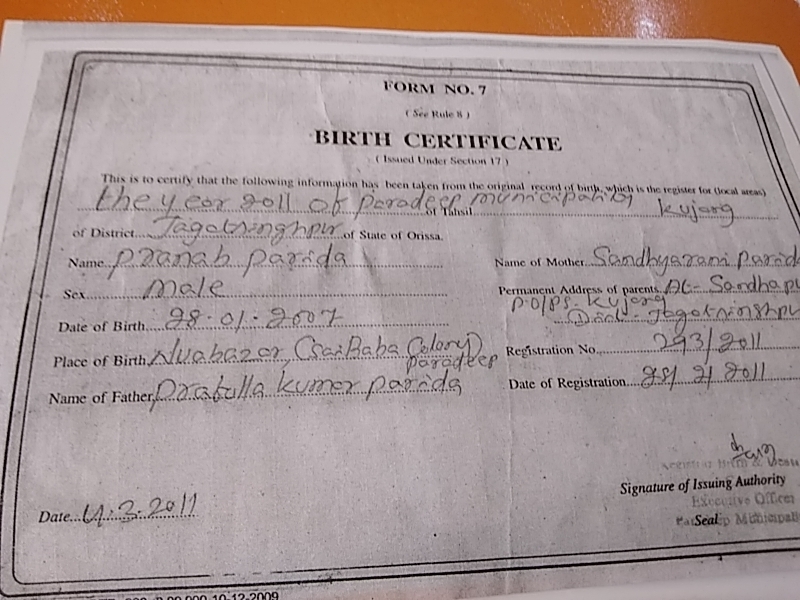 FORM NO. 7
( See Rule 8 )
BIRTH CERTIFICATE
( Issued Under Section 17 )
This is to certify that the following information has been taken from the original record of birth, which is the register for (local areas)
the year 2011 of paradeep municipality of Tahsil kujang
of District Jagatsinghpur of State of Orissa.
Name pranab parida
Name of Mother Sandhyarani parida
Sex male
Permanent Address of parents At- Sandhapu
P.O/PS- kujang
Dist- Jagatsinghpu
Date of Birth 28.01.2007
Place of Birth Nuabazar, (Sai Baba Colony)
paradeep
Registration No. 293/2011
Name of Father prafulla kumar parida
Date of Registration 28/2/2011
Registrar Birth &
Signature of Issuing Authority
Executive Officer
Seal
Municipali
Date 4.3.2011
10-12-2009